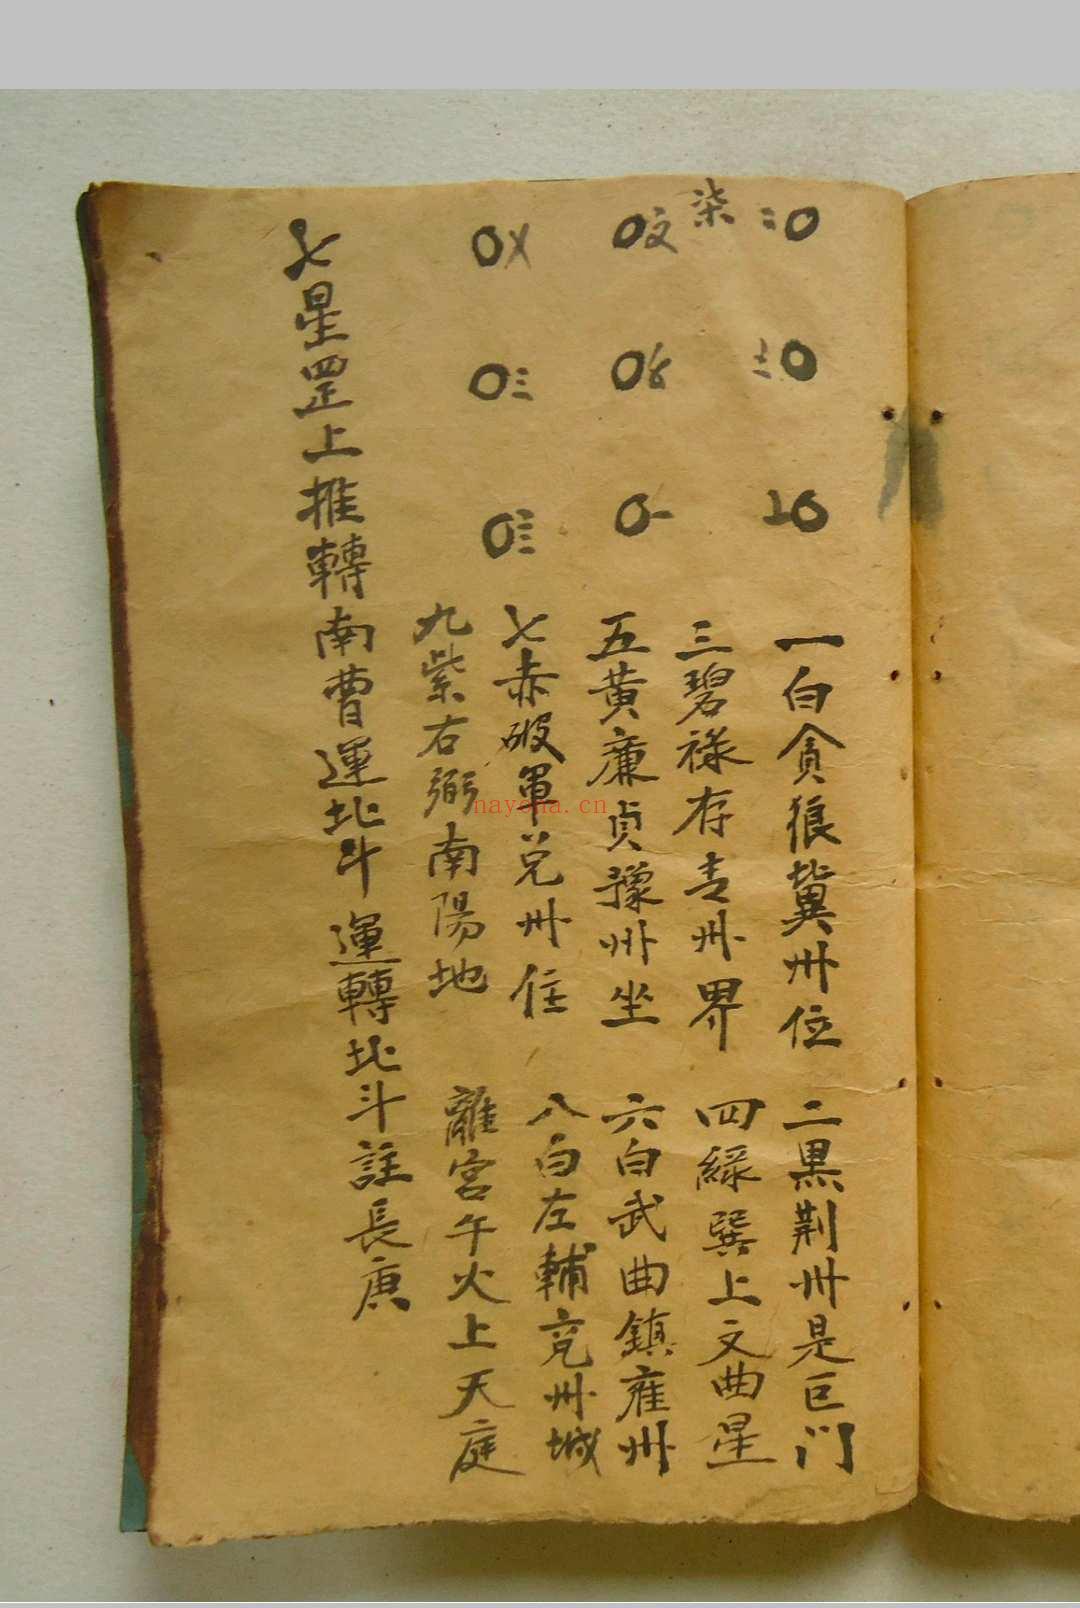 柒
一白貪狼冀州位 二黑荆州是巨门
三碧祿存青州界 四綠巽上文曲星
五黃廉貞豫州坐 六白武曲鎮雍州
七赤破軍兌州住 八白左輔兗州城
九紫右弼南陽地 離宮午火上天庭
七星罡上推轉南曹運北斗運轉北斗註長庚
nayona.cn